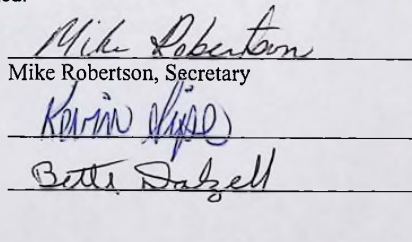 Mike Robertson
Mike Robertson, Secretary
Kevin
Betti Dalzell